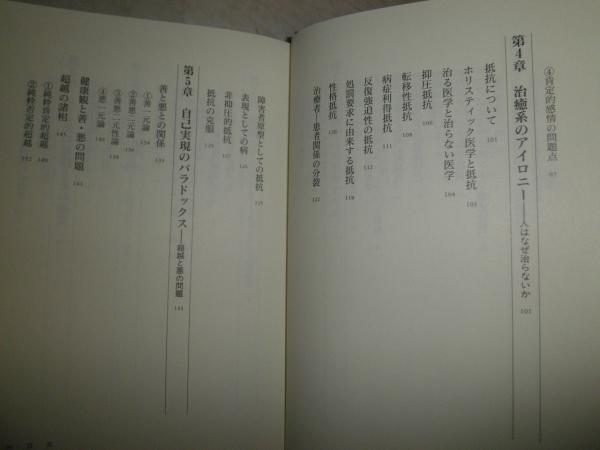 ④肯定的感情の問題点 97
第4章 治癒系のアイロニー——人はなぜ治らないか 101
抵抗について 101
ホリスティック医学と抵抗 103
治る医学と治らない医学 104
抑圧抵抗 106
転移性抵抗 109
病症利得抵抗 111
反復強迫性の抵抗 112
処罰要求に由来する抵抗 119
性格抵抗 120
治療者—患者関係の分裂 122
障害者原型としての抵抗 125
表現としての病 126
非抑圧的抵抗 127
抵抗の克服 129
第5章 自己実現のパラドックス——超越と悪の問題 133
善と悪との関係 133
①善一元論 134
②善悪二元論 134
③善悪二元性論
④悪一元論
健康観と善・悪の問題 141
超越の諸相 145
①純粋肯定的超越
②純粋否定的超越 152
目次